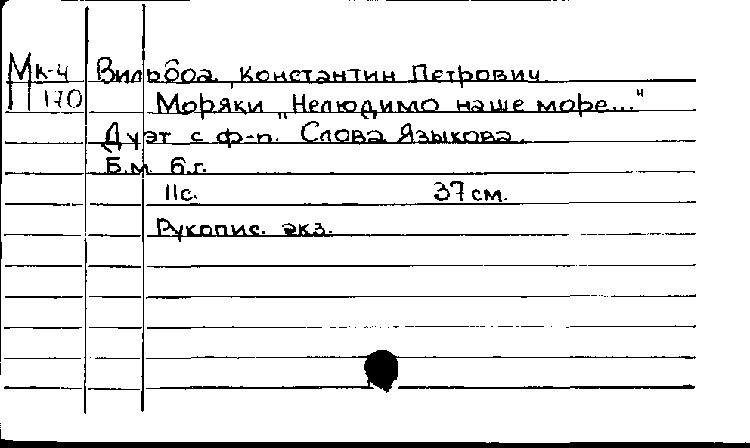 Мк-4 Вильбоа, Константин Петрович
170 Моряки „Нелюдимо наше море..."
Дуэт с ф-п. Слова Языкова.
Б.м. б.г.
11с. 37 см.
Рукопис. экз.